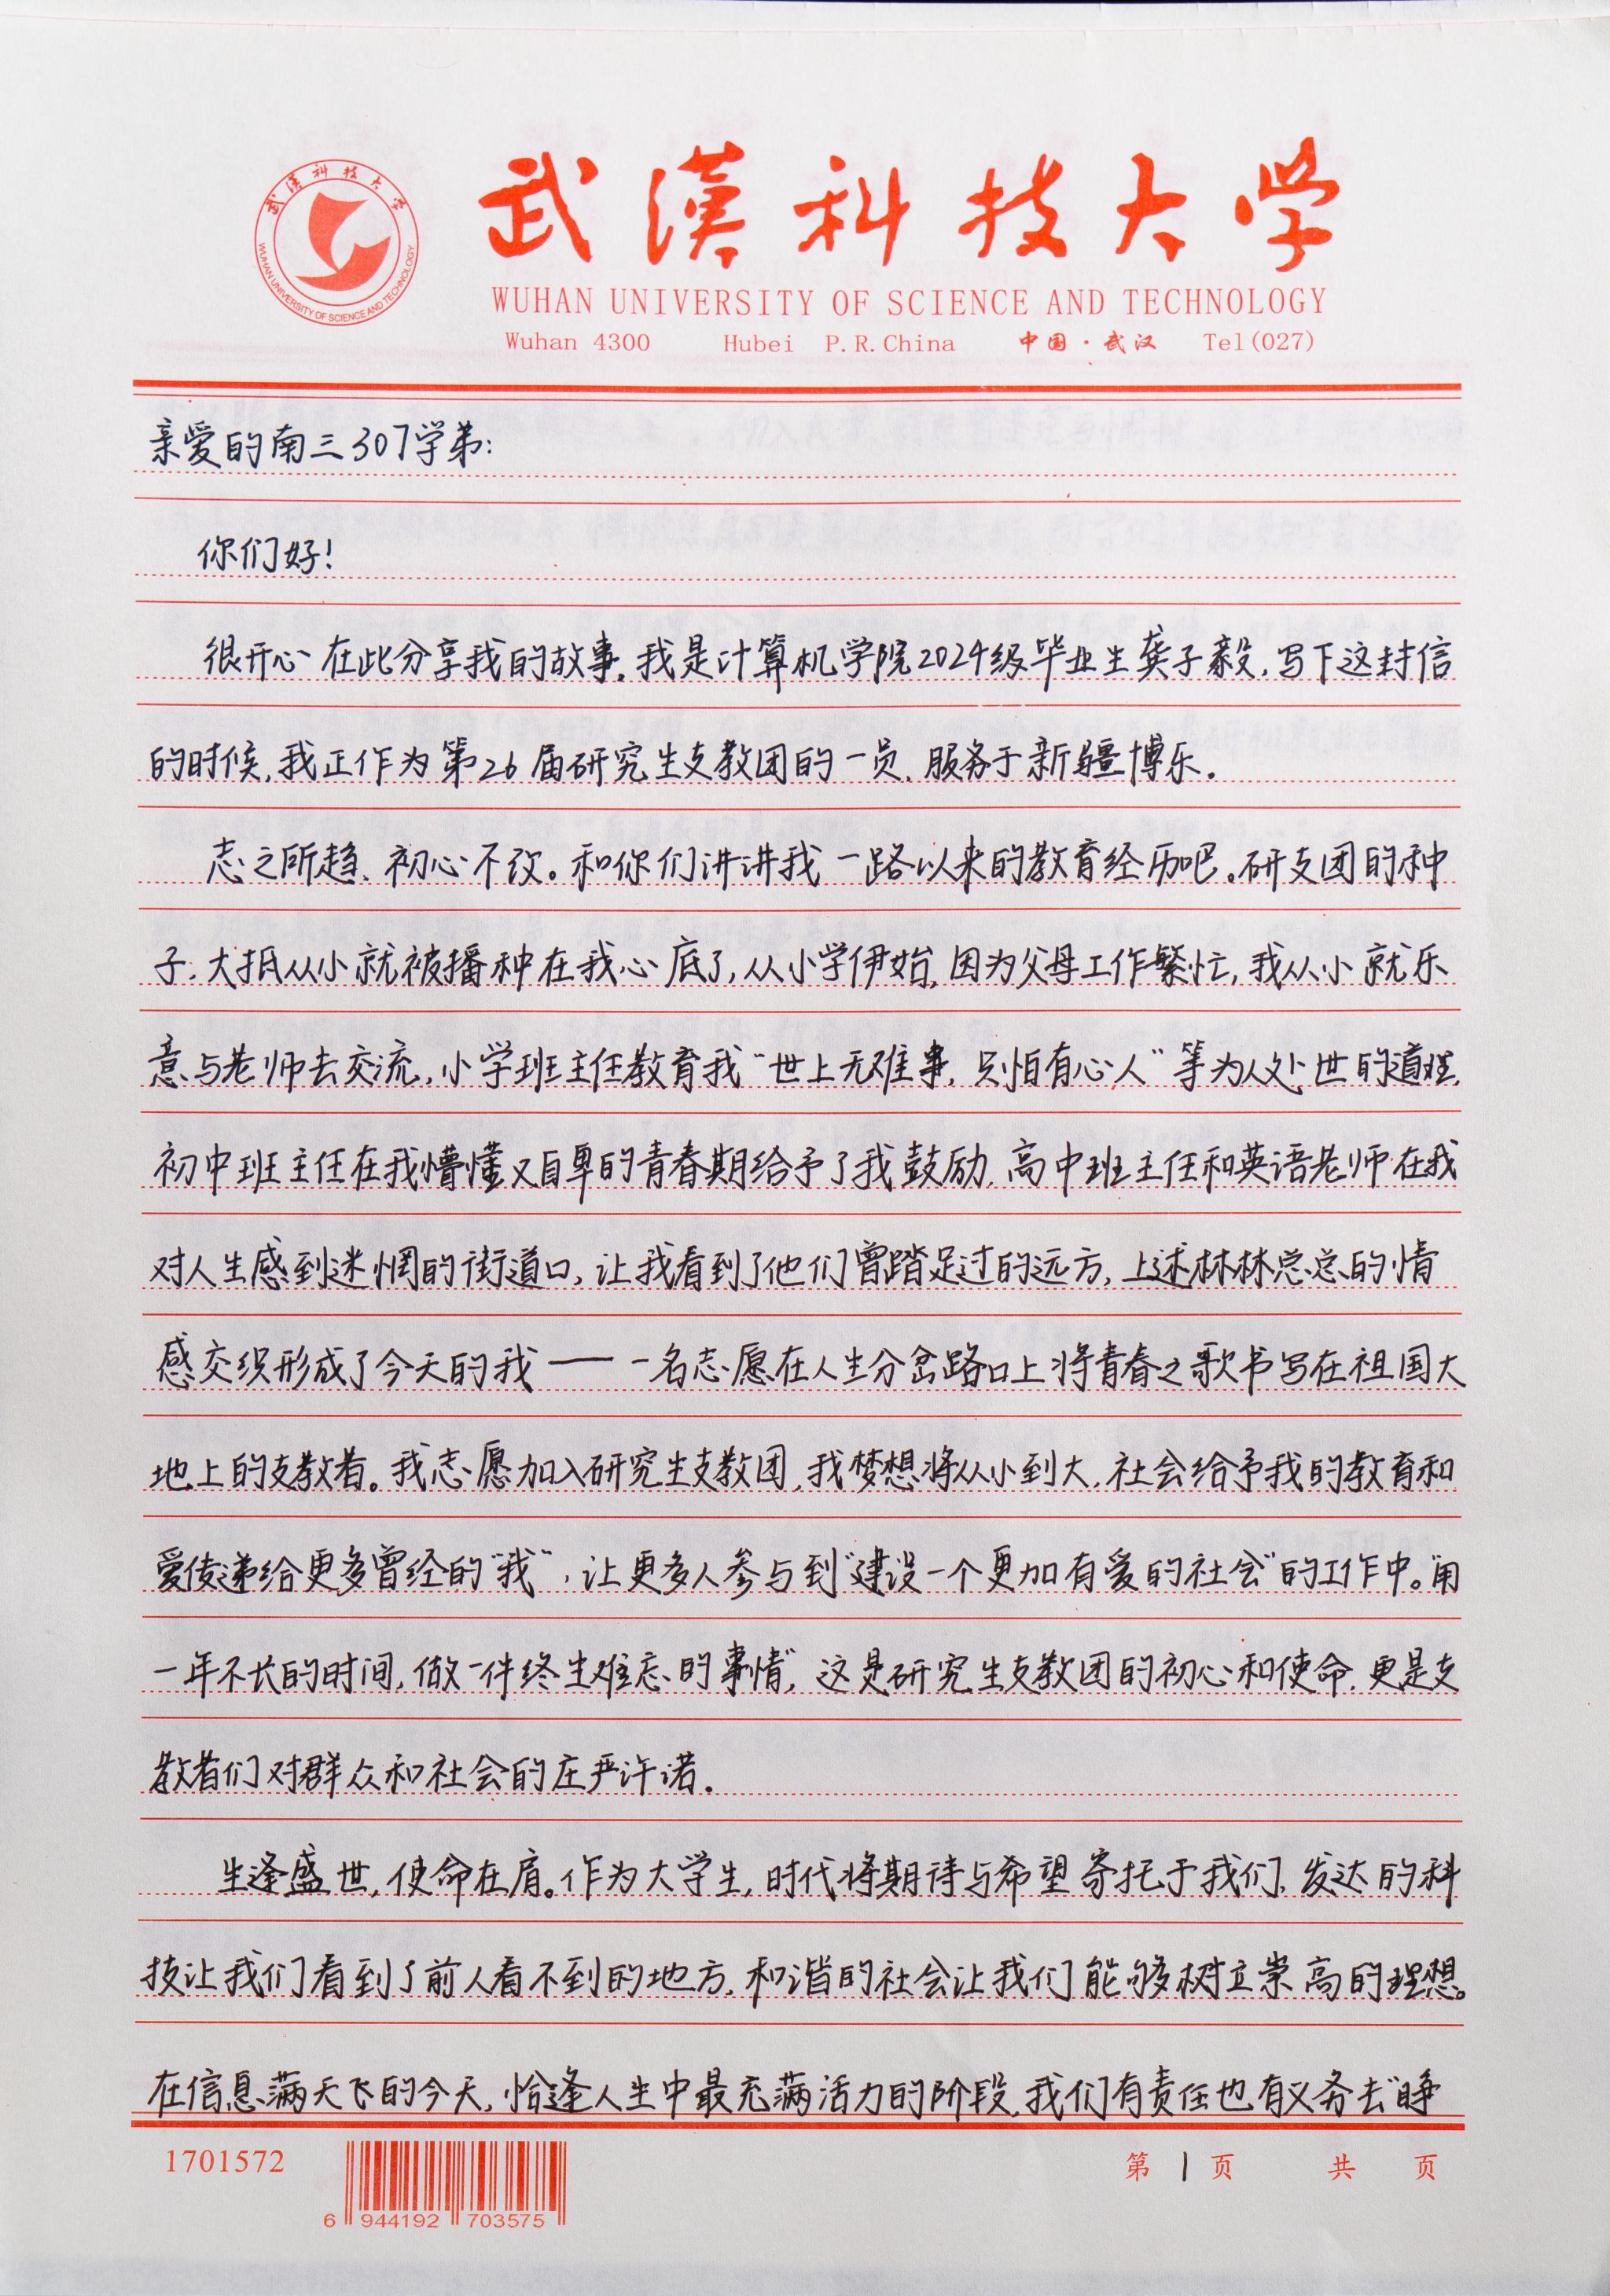 武漢科技大学
WUHAN UNIVERSITY OF SCIENCE AND TECHNOLOGY
武漢科技大学
WUHAN UNIVERSITY OF SCIENCE AND TECHNOLOGY
Wuhan 4300 Hubei P.R.China 中国·武汉 Tel(027)
亲爱的南三307学弟:
你们好!
很开心在此分享我的故事,我是计算机学院2024级毕业生龚子毅,写下这封信
的时候,我正作为第26届研究生支教团的一员,服务于新疆博乐.
志之所趋,初心不改。和你们讲讲我一路以来的教育经历吧。研支团的种
子,大抵从小就被播种在我心底了,从小学伊始,因为父母工作繁忙,我从小就乐
意与老师去交流,小学班主任教育我“世上无难事,只怕有心人”等为人处世的道理,
初中班主任在我懵懂又自卑的青春期给予了我鼓励,高中班主任和英语老师在我
对人生感到迷惘的街道口,让我看到了他们曾踏足过的远方,上述林林总总的情
感交织形成了今天的我——一名志愿在人生分岔路口上将青春之歌书写在祖国大
地上的支教者。我志愿加入研究生支教团,我梦想将从小到大,社会给予我的教育和
爱传递给更多曾经的“我”,让更多人参与到“建设一个更加有爱的社会”的工作中。“用
一年不长的时间,做一件终生难忘的事情”,这是研究生支教团的初心和使命,更是支
教者们对群众和社会的庄严许诺.
生逢盛世,使命在肩。作为大学生,时代将期待与希望寄托于我们,发达的科
技让我们看到了前人看不到的地方,和谐的社会让我们能够树立崇高的理想。
在信息满天飞的今天,恰逢人生中最充满活力的阶段,我们有责任也有义务去“睁
1701572
6 944192 703575
第 1 页 共 页